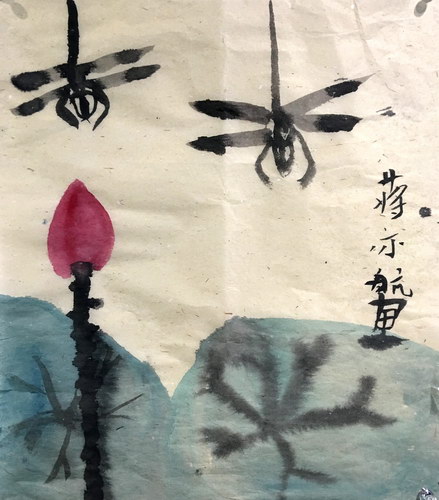 蒋亦航画